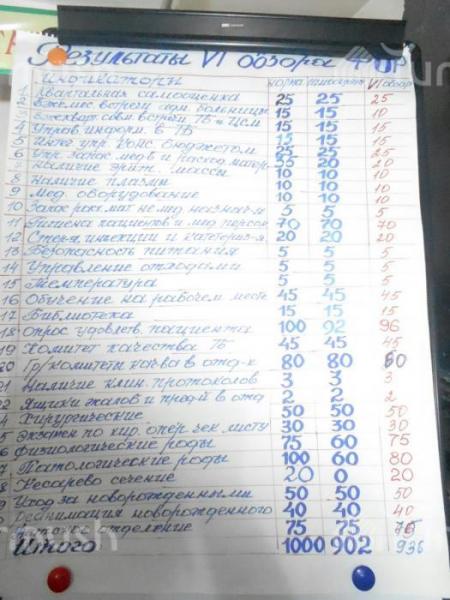 Результаты VI обзора
Индикаторы норма VI обзор
1 Квартальная самооценка 25 25 25
2 Ежемес встречи адм. больницы 15 15 15
3 встречи ТБ и ЦСМ 15 15 10
4 Управ информ. в ТБ 15 15 15
5 Инт упр. бюджетом 25 25 25
6 Упр. запас. мед. в и расход. матер 20
7 Наличие массы 10 10 10
8 Наличие плазмы 10 10 10
9 Мед. оборудование 10 10 10
10 Запас расх. мат не мед. назнач-я 5 5 5
11 Гигиена пациентов и мед. персон 70 70 70
12 инфекции и катетериз-я 20 20 20
13 Безопасность питания 5 5 5
14 Управление отходами 5 5 5
15 Температура 5 5 5
16 Обучение на рабочем месте 45 45 45
17 Библиотека 15 15 15
18 Опрос удовлетв. пациента 100 92 96
19 Комитет качества ТБ 45 45 45
20 Гр/комитеты кач-ва в отд-х 80 80 60
21 Наличие клин. протоколов 3 3 3
22 Ящики жалоб и пред-й в отд 2 2 2
4 Хирургические 50 50 50
5 Экзамен по хир. опер. чек листу 30 30 30
6 Физиологические роды 75 60 75
7 Патологические роды 100 60 80
8 Кесарево сечение 20 0 20
9 Уход за новорожденными 50 50 50
Реанимация новорожденного 40 40 40
отделение 75 75 75
Итого 1000 902 936